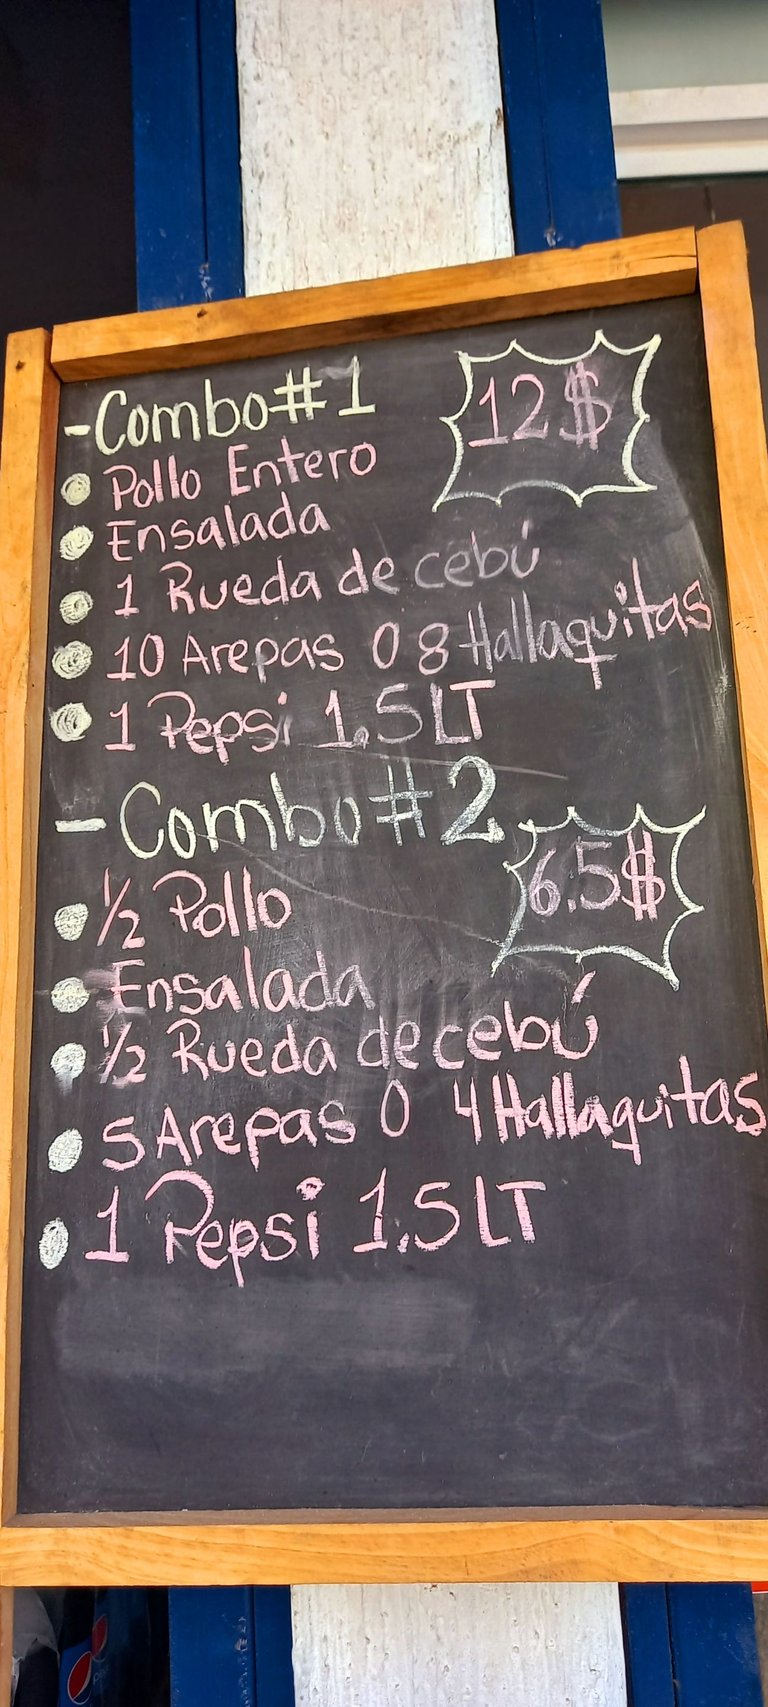 - Combo #1
12$
Pollo Entero
Ensalada
1 Rueda de cebú
10 Arepas O 8 Hallaquitas
1 Pepsi 1.5 LT
- Combo #2
6.5$
1/2 Pollo
Ensalada
1/2 Rueda de cebú
5 Arepas O 4 Hallaquitas
1 Pepsi 1.5 LT